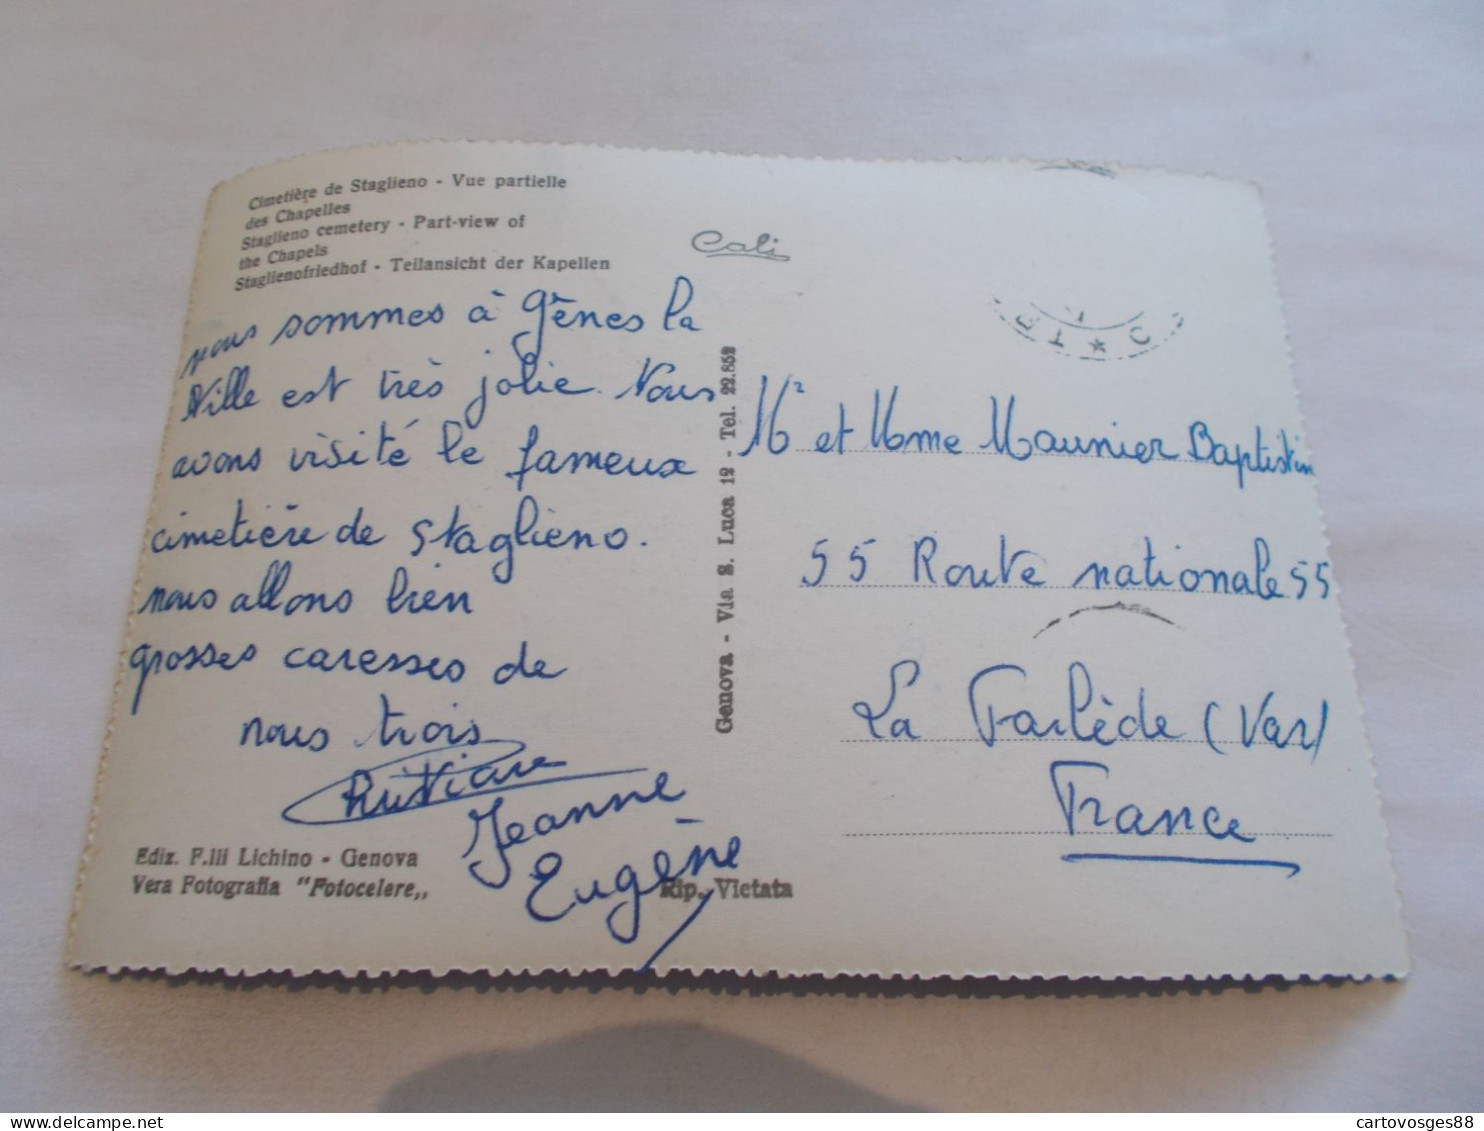 Cimetière de Staglieno - Vue partielle
des Chapelles
Staglieno cemetery - Part-view of
the Chapels
Staglienofriedhof - Teilansicht der Kapellen
Cali
nous sommes à Gênes la
Ville est très jolie. Nous
avons visité le fameux
cimetière de Staglieno.
nous allons bien
grosses caresses de
nous trois
Jeanne
Eugène
Ediz. F.lli Lichino - Genova
Vera Fotografia "Fotocelere„
Rip. Vietata
Genova - Via S. Luca 12 - Tel. 22.852
Mr et Mme Maunier Baptistin
55 Route nationale 55
La Farlède (Var)
France
cartovosges88